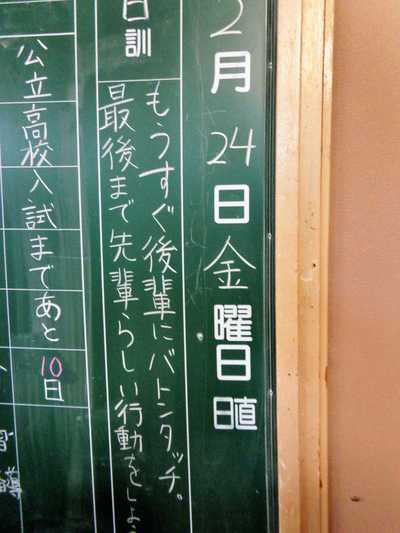 2月24日金曜日
日直
日訓
もうすぐ後輩にバトンタッチ。
最後まで先輩らしい行動をしよう
公立高校入試まであと10日